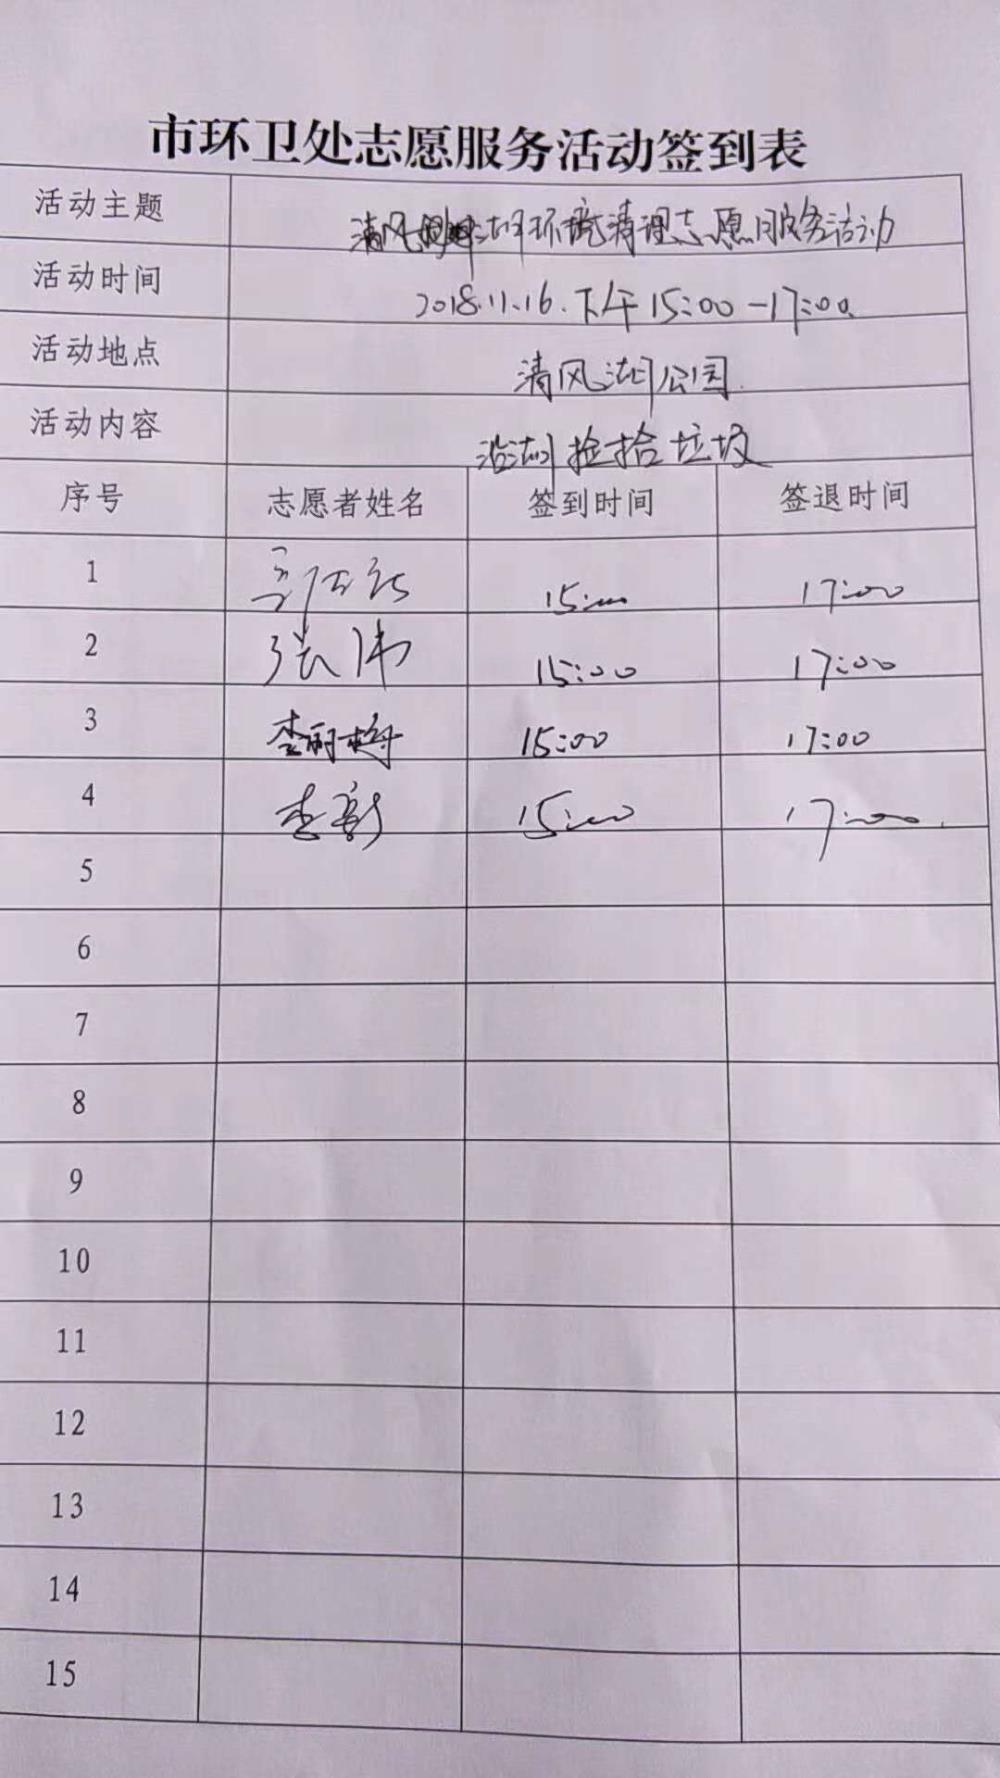 市环卫处志愿服务活动签到表
活动主题 清风湖环境清理志愿服务活动
活动时间 2018.11.16.下午15:00-17:00
活动地点 清风湖公园
活动内容 沿湖捡拾垃圾
序号 志愿者姓名 签到时间 签退时间
1 15:00 17:00
2 张伟 15:00 17:00
3 李丽梅 15:00 17:00
4 李 15:00 17:00
5
6
7
8
9
10
11
12
13
14
15